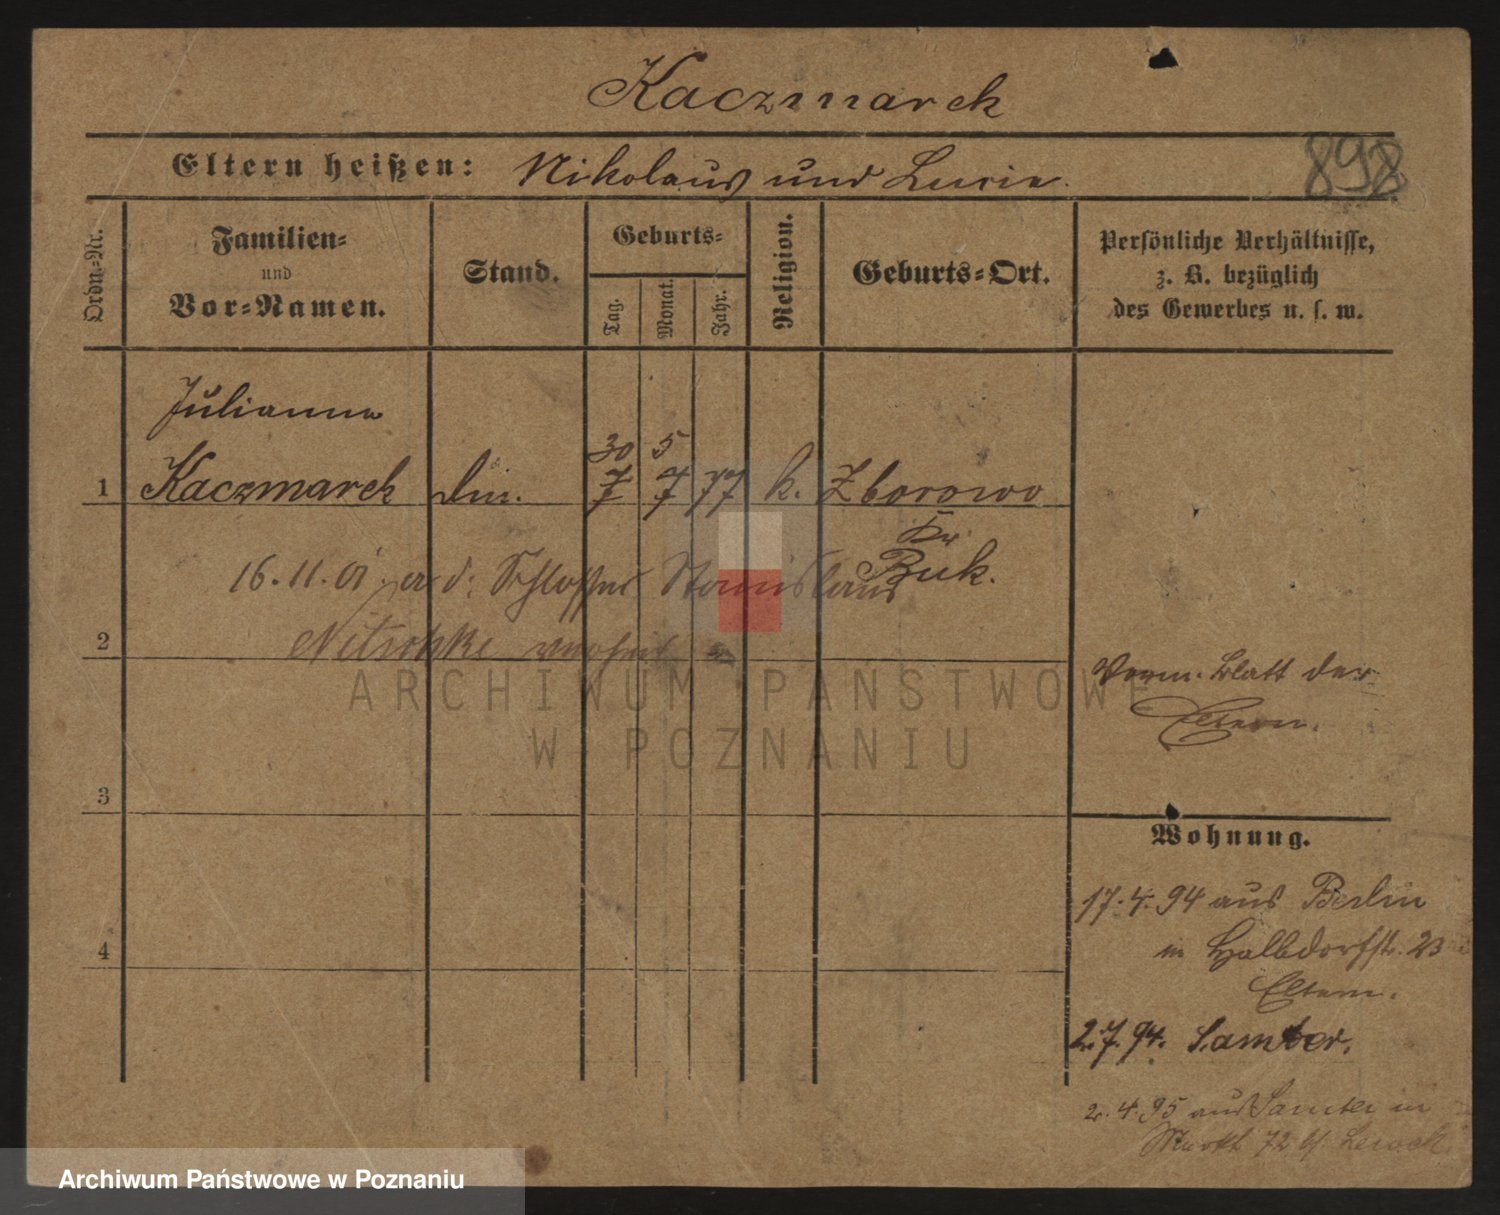 Kaczmarek
Eltern heißen: Nikolaus und Lucie.
898
Ordn.-Nr.
Familien-
und
Vor-Namen.
Stand.
Geburts-
Tag.
Monat.
Jahr.
Religion.
Geburts-Ort.
Persönliche Verhältnisse,
z. B. bezüglich
des Gewerbes u. s. w.
Julianna
30 5
1 Kaczmarek 7 7 77 k. Zborowo
Kr.
Buk.
16.11.01 a d. Schlosser Stanislaus
Nitschke
2
Vorm. Blatt der
Eltern.
ARCHIWUM PAŃSTWOWE
W POZNANIU
3
Wohnung.
17.4.94 aus Berlin
in Halbdorfstr. 23
Eltern.
4
2.7.94. Samter.
2.4.95 aus Samter in
Markt 72 b/
Archiwum Państwowe w Poznaniu